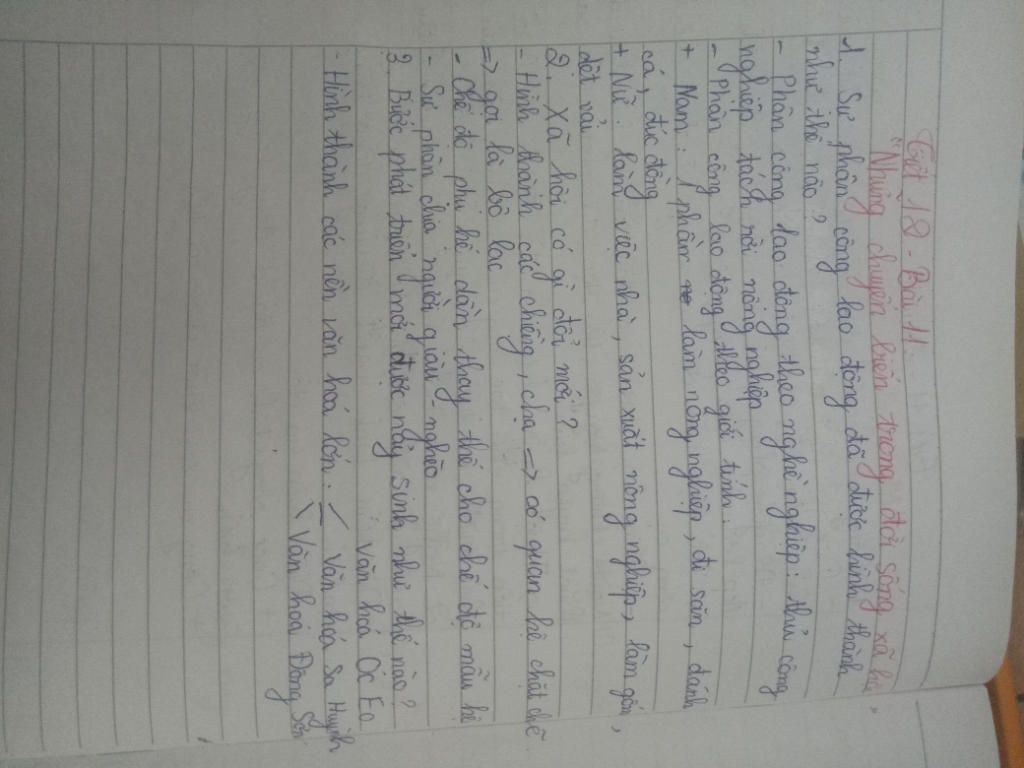 Tiết 12 - Bài 11:
"Những chuyển biến trong đời sống xã hội"
1. Sự phân công lao động đã được hình thành
như thế nào?
- Phân công lao động theo nghề nghiệp: thủ công
nghiệp tách rời nông nghiệp
- Phân công lao động theo giới tính:
+ Nam: 1 phần làm nông nghiệp, đi săn, đánh
cá, đúc đồng
+ Nữ: làm việc nhà, sản xuất nông nghiệp, làm gốm,
dệt vải
2. Xã hội có gì đổi mới?
- Hình thành các chiềng, chạ => có quan hệ chặt chẽ
=> gọi là bộ lạc
- Chế độ phụ hệ dần thay thế cho chế độ mẫu hệ
- Sự phân chia người giàu - nghèo
3. Bước phát triển mới được nảy sinh như thế nào?
Văn hoá Óc Eo
- Hình thành các nền văn hoá lớn: Văn hoá Sa Huỳnh
Văn hoá Đông Sơn